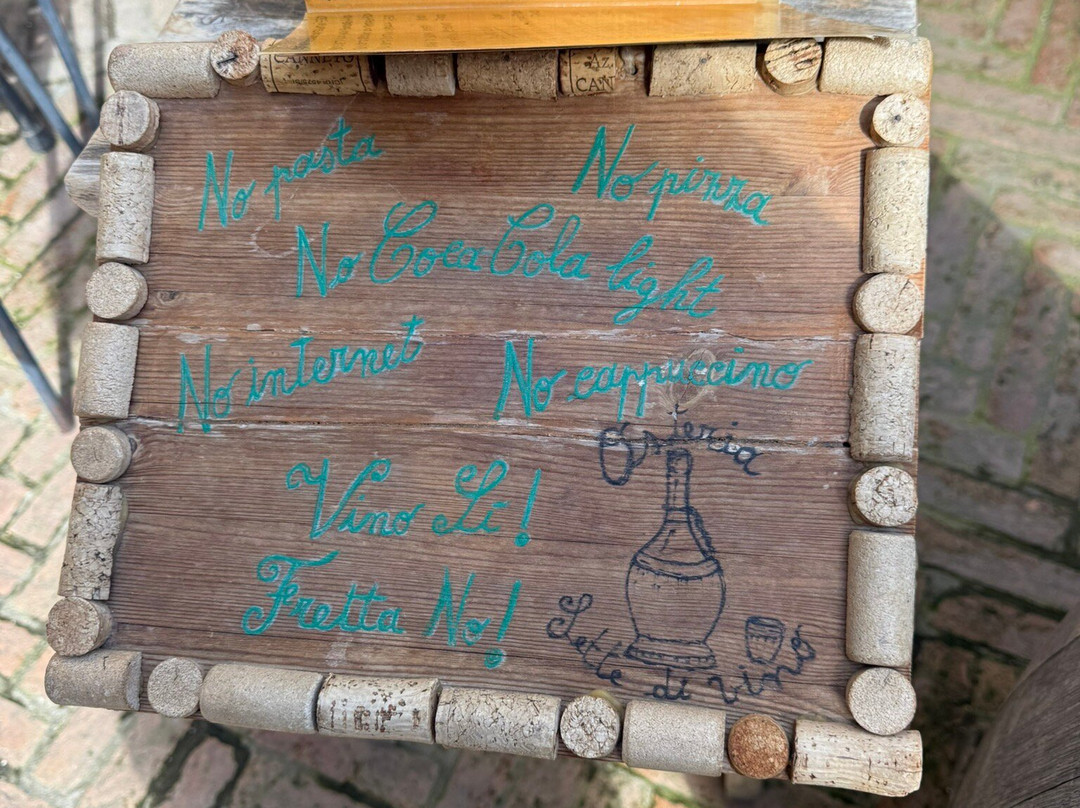 CANNETO
AZ.
CANT
No pasta
No pizza
No CocaCola light
No internet
No cappuccino
Osteria
Vino Si!
Fretta No!
Sette di vino